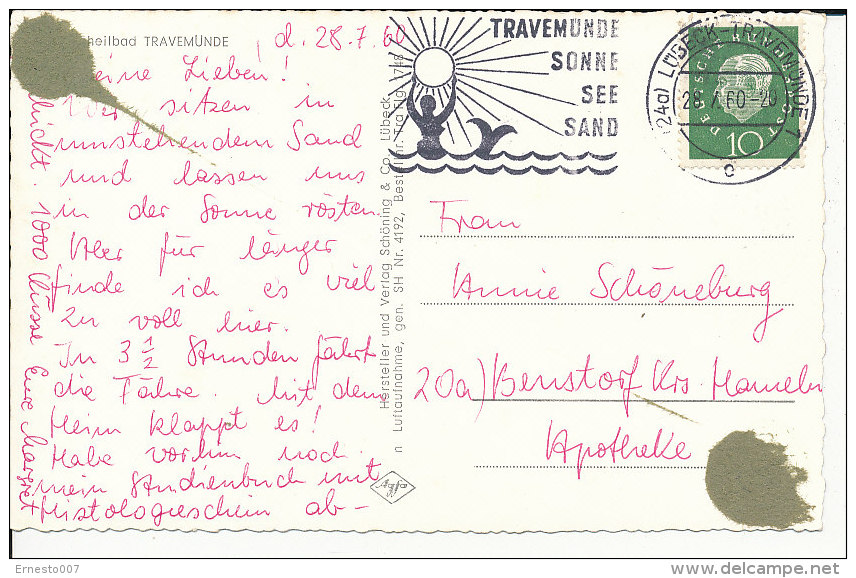 heilbad TRAVEMÜNDE
d. 28.7.60
Meine Lieben!
Wir sitzen in
umstehendem Sand
und lassen uns
in der Sonne rösten.
Aber für länger
finde ich es viel
zu voll hier.
In 3 1/2 Stunden fährt
die Fähre. Mit dem
Heim klappt es!
Habe vorhin noch
mein Studienbuch mit
Histologieschein ab-
schickt. 1000 Küsse Eure Margret
Hersteller und Verlag Schöning & Co., Lübeck
n Luftaufnahme, gen. SH Nr. 4192, Best.
1748
TRAVEMÜNDE
SONNE
SEE
SAND
(24a) LÜBECK-TRAVEMÜNDE 1
28.7.60-20
c
DEUTSCHE BUNDESPOST
10
Frau
Annie Schöneburg
20a) Benstorf Krs. Hameln
Apotheke
Agfa
© Ernesto007
delcampe.net